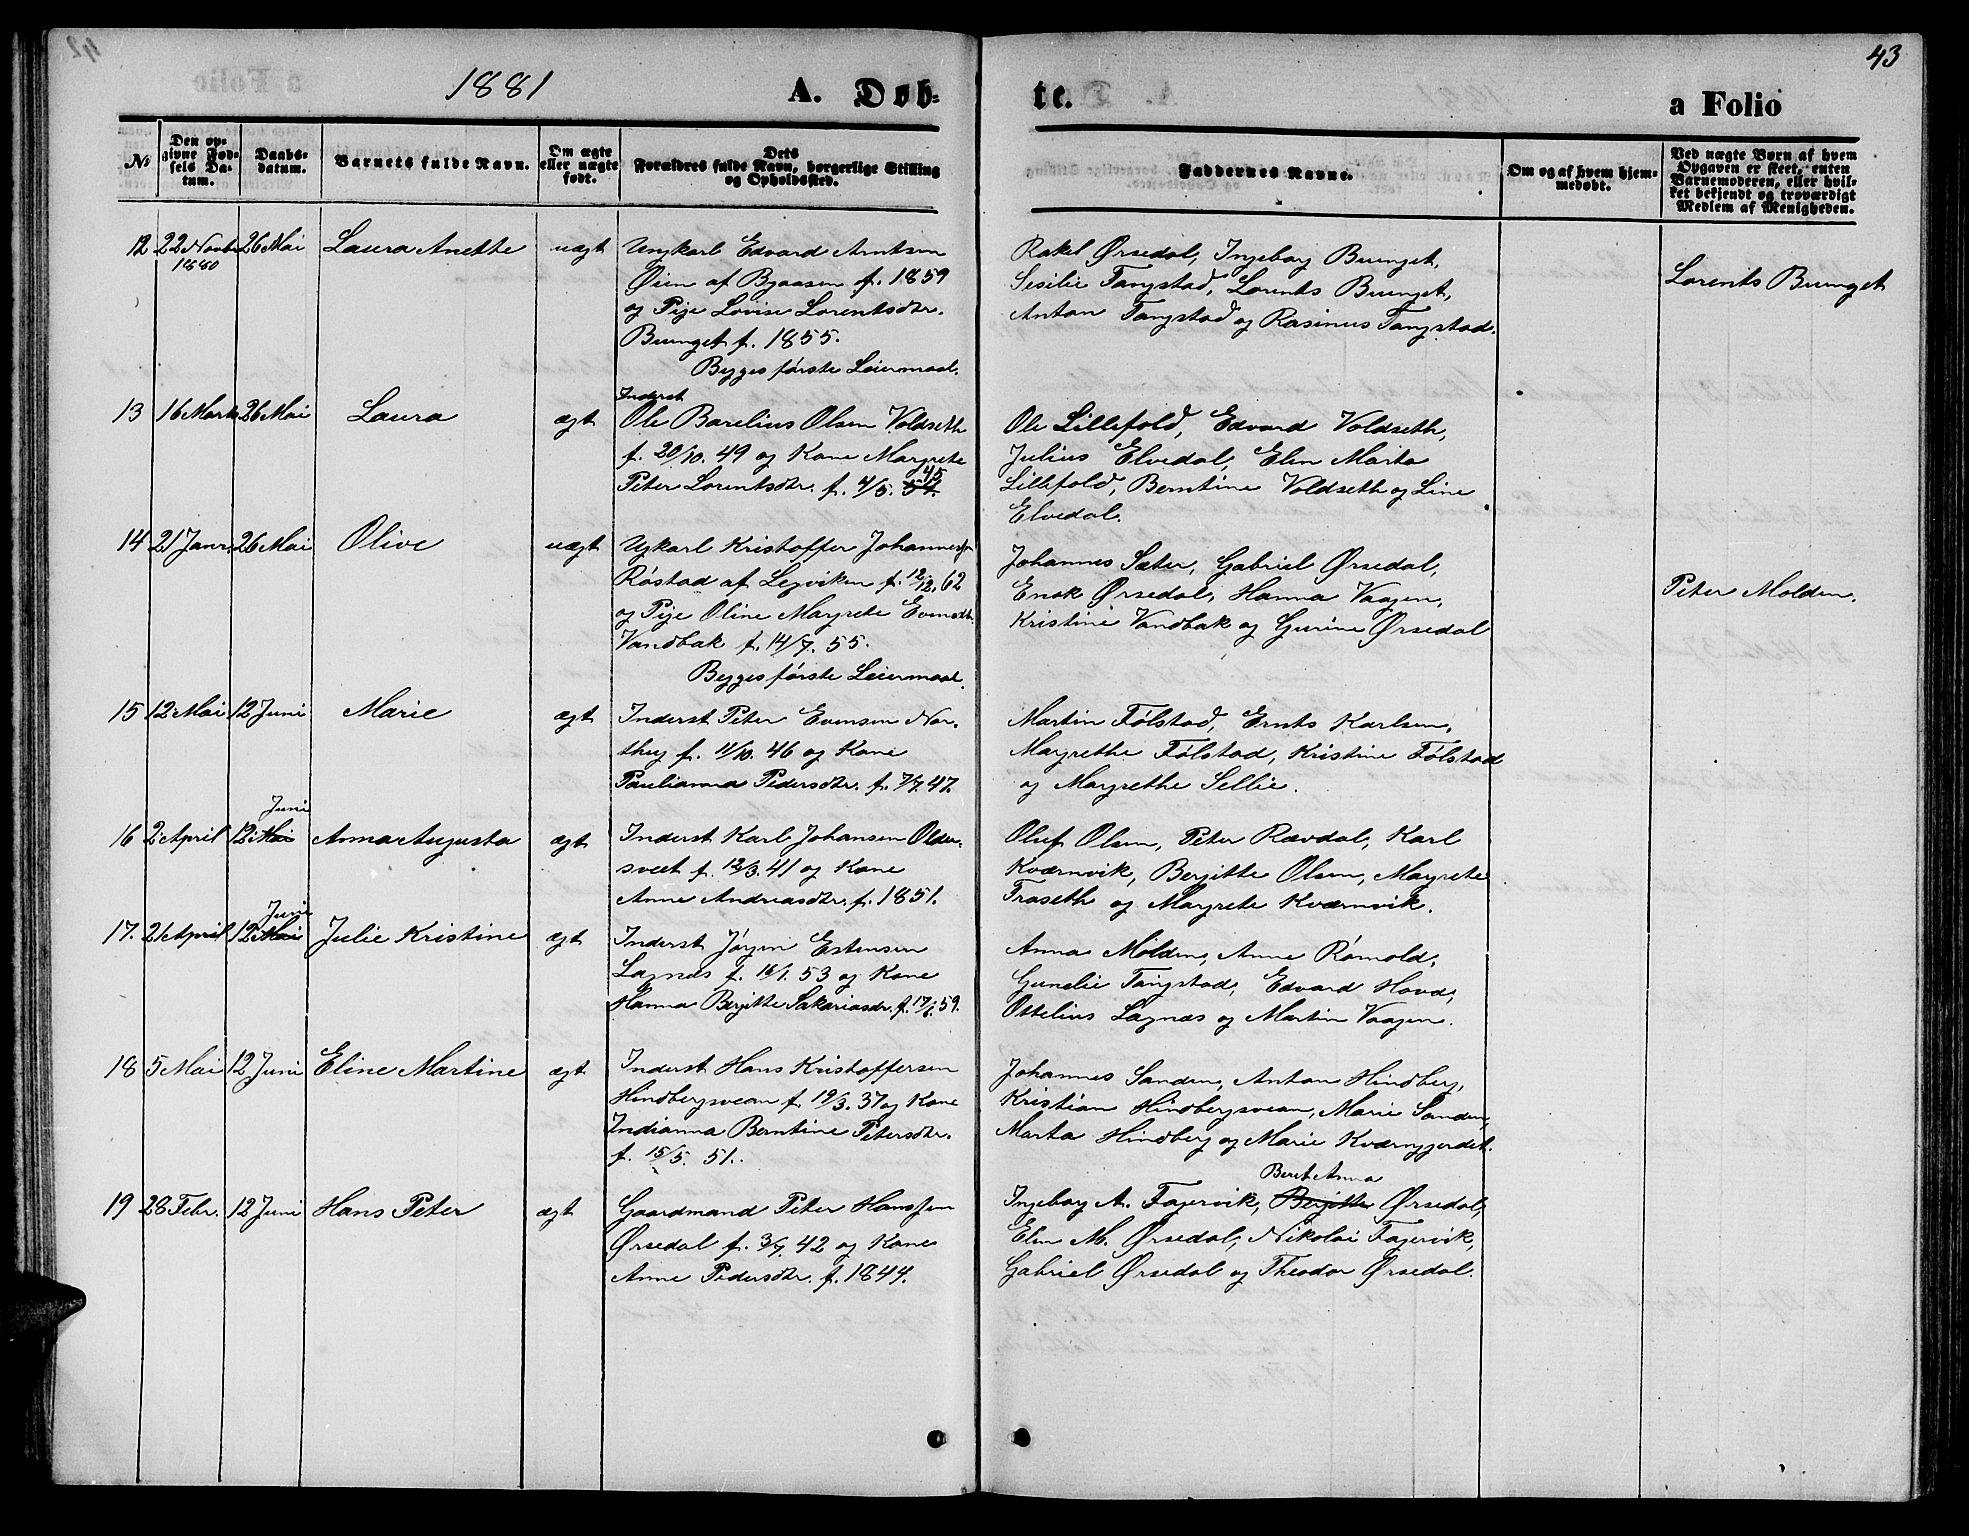 43
1881 A. Døb- te. a Folio
№ Den opgivne Fødsels Datum. Daabsdatum. Barnets fulde Navn. Om ægte eller uægte født. Dets Forældres fulde Navn, borgerlige Stilling og Opholdssted. Faddernes Navne. Om og af hvem hjemmedøbt. Ved uægte Børn af hvem Opgaven er skeet, enten Barnemoderen, eller hvilket bekjendt og troværdigt Medlem af Menigheden.
12 22 Novbr 1880 26 Mai Laura Anette uægt Ungkarl Edvard Arntsen
Øien af Byaasen f. 1859
og Pige Lovise Lorentsdtr.
Bunget f. 1855.
Begges første Leiermaal.
Rakel Ørsedal, Ingeborg Bunget,
Sesilie Tangstad, Lorents Bunget,
Anton Tangstad og Rasinus Tangstad.
Lorents Bunget
13 16 Marts 26 Mai Laura ægt Inderst
Ole Barelius Olsen Voldseth
f. 20/10. 49 og Kone Margrete
Peter Lorentsdtr. f. 4/5. 54. 45
Ole Lillefold, Edvard Voldseth,
Julius Elvedal, Elen Marta
Lillefold, Berntine Voldseth og Line
Elvedal.
14 21 Janr. 26 Mai Olive uægt Ugkarl Kristoffer Johannessen
Røstad af Legviken f. 12/12. 62
og Pige Oline Margrete Evensdtr.
Vandbak f. 14/7. 55.
Begges første Leiermaal.
Johannes Sæter, Gabriel Ørsedal,
Enok Ørsedal, Hanna Vaagen,
Kristine Vandbak og Gurine Ørsedal
Peter Molden.
15 12 Mai 12 Juni Marie ægt Inderst Peter Evensen Nor-
thug f. 11/10. 46 og Kone
Paulianna Pedersdtr. f. 7/7. 47.
Martin Følstad, Ernts Karlsen,
Margrethe Følstad, Kristine Følstad
og Margrethe Sellie.
16 2 April 12 Mai Juni Anna Augusta ægt Inderst Karl Johansen Older-
sveet f. 12/3. 41 og Kone
Anne Andreasdtr. f. 1851.
Oluf Olsen, Peter Rævdal, Karl
Kværnvik, Bergitte Olsen, Margrete
Fraseth og Margrete Kværnvik.
17. 21 April 12 Mai Juni Julie Kristine ægt Inderst Jørgen Estensen
Lagnæs f. 16/1. 53 og Kone
Hanna Bergitte Sakariasdr. f. 17/6. 59.
Anna Mólden, Anne Rómold,
Gunelie Tangstad, Edvard Hovd,
Ottelius Lagnæs og Martin Vaagen.
18 5 Mai 12 Juni Eline Martine ægt Inderst Hans Kristoffersen
Hindbergsveen f. 19/3. 37 og Kone
Indianna Berntine Petersdtr.
f. 15/5. 51.
Johannes Sanden, Anton Hindberg,
Kristian Hindbergsveen, Marie Sanden,
Marta Hindberg og Marie Kværngjerdet.
19 28 Febr. 12 Juni Hans Peter ægt Gaardmand Peter Hanssen
Ørsedal f. 3/7. 42 og Kone
Anne Pedersdtr. f. 1844.
Ingeborg A. Fagervik, Bergitte Berit Anna Ørsedal,
Elen M. Ørsedal, Nikolai Fagervik,
Gabriel Ørsedal og Theodor Ørsedal.